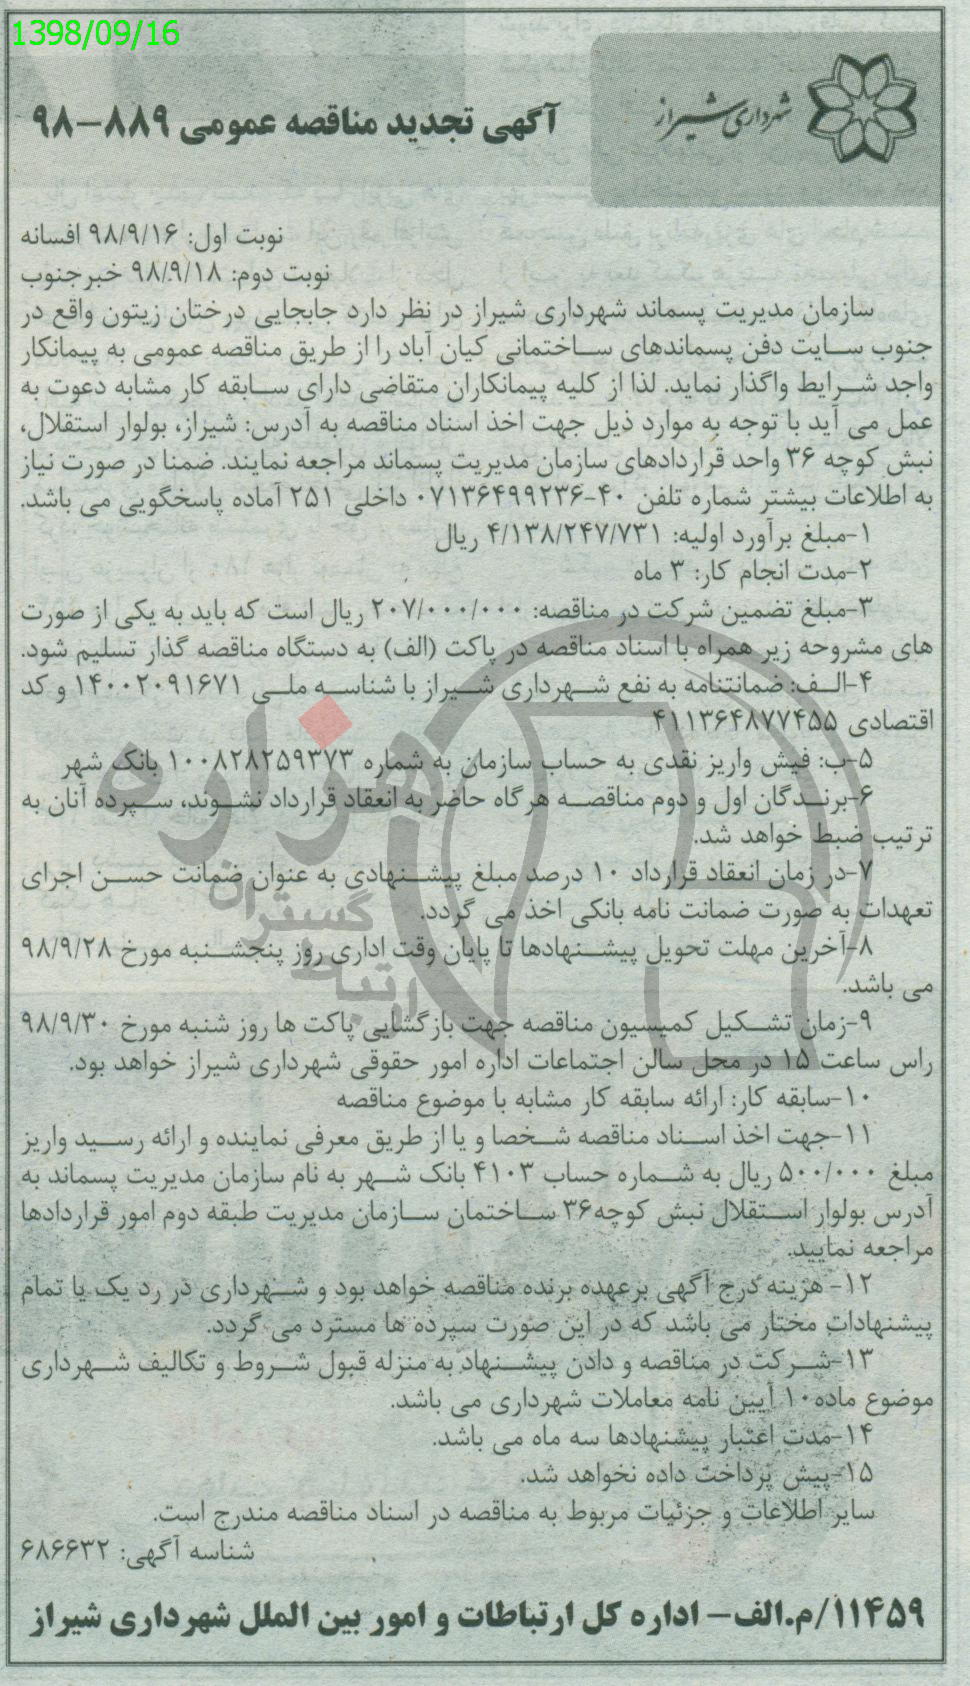 1398/09/16
شهرداری شیراز
آگهی تجدید مناقصه عمومی ۸۸۹-۹۸
نوبت اول: ۹۸/۹/۱۶ افسانه
نوبت دوم: ۹۸/۹/۱۸ خبرجنوب
سازمان مدیریت پسماند شهرداری شیراز در نظر دارد جابجایی درختان زیتون واقع در
جنوب سایت دفن پسماندهای ساختمانی کیان آباد را از طریق مناقصه عمومی به پیمانکار
واجد شرایط واگذار نماید. لذا از کلیه پیمانکاران متقاضی دارای سابقه کار مشابه دعوت به
عمل می آید با توجه به موارد ذیل جهت اخذ اسناد مناقصه به آدرس: شیراز، بولوار استقلال،
نبش کوچه ۳۶ واحد قراردادهای سازمان مدیریت پسماند مراجعه نمایند. ضمنا در صورت نیاز
به اطلاعات بیشتر شماره تلفن ۴۰-۰۷۱۳۶۴۹۹۲۳۶ داخلی ۲۵۱ آماده پاسخگویی می باشد.
۱-مبلغ برآورد اولیه: ۴/۱۳۸/۲۴۷/۷۳۱ ریال
۲-مدت انجام کار: ۳ ماه
۳-مبلغ تضمین شرکت در مناقصه: ۲۰۷/۰۰۰/۰۰۰ ریال است که باید به یکی از صورت
های مشروحه زیر همراه با اسناد مناقصه در پاکت (الف) به دستگاه مناقصه گذار تسلیم شود.
۴-الف: ضمانتنامه به نفع شهرداری شیراز با شناسه ملی ۱۴۰۰۲۰۹۱۶۷۱ و کد
اقتصادی ۴۱۱۳۶۴۸۷۷۴۵۵
۵-ب: فیش واریز نقدی به حساب سازمان به شماره ۱۰۰۸۲۸۲۵۹۳۷۳ بانک شهر
۶-برندگان اول و دوم مناقصه هرگاه حاضر به انعقاد قرارداد نشوند، سپرده آنان به
ترتیب ضبط خواهد شد.
۷-در زمان انعقاد قرارداد ۱۰ درصد مبلغ پیشنهادی به عنوان ضمانت حسن اجرای
تعهدات به صورت ضمانت نامه بانکی اخذ می گردد.
۸-آخرین مهلت تحویل پیشنهادها تا پایان وقت اداری روز پنجشنبه مورخ ۹۸/۹/۲۸
می باشد.
۹-زمان تشکیل کمیسیون مناقصه جهت بازگشایی پاکت ها روز شنبه مورخ ۹۸/۹/۳۰
راس ساعت ۱۵ در محل سالن اجتماعات اداره امور حقوقی شهرداری شیراز خواهد بود.
۱۰-سابقه کار: ارائه سابقه کار مشابه با موضوع مناقصه
۱۱-جهت اخذ اسناد مناقصه شخصا و یا از طریق معرفی نماینده و ارائه رسید واریز
مبلغ ۵۰۰/۰۰۰ ریال به شماره حساب ۴۱۰۳ بانک شهر به نام سازمان مدیریت پسماند به
آدرس بولوار استقلال نبش کوچه۳۶ ساختمان سازمان مدیریت طبقه دوم امور قراردادها
مراجعه نمایید.
۱۲- هزینه درج آگهی برعهده برنده مناقصه خواهد بود و شهرداری در رد یک یا تمام
پیشنهادات مختار می باشد که در این صورت سپرده ها مسترد می گردد.
۱۳-شرکت در مناقصه و دادن پیشنهاد به منزله قبول شروط و تکالیف شهرداری
موضوع ماده۱۰ آیین نامه معاملات شهرداری می باشد.
۱۴-مدت اعتبار پیشنهادها سه ماه می باشد.
۱۵-پیش پرداخت داده نخواهد شد.
سایر اطلاعات و جزئیات مربوط به مناقصه در اسناد مناقصه مندرج است.
شناسه آگهی: ۶۸۶۶۳۲
۱۱۴۵۹/م.الف- اداره کل ارتباطات و امور بین الملل شهرداری شیراز
هزاره
گستران
ارتباط